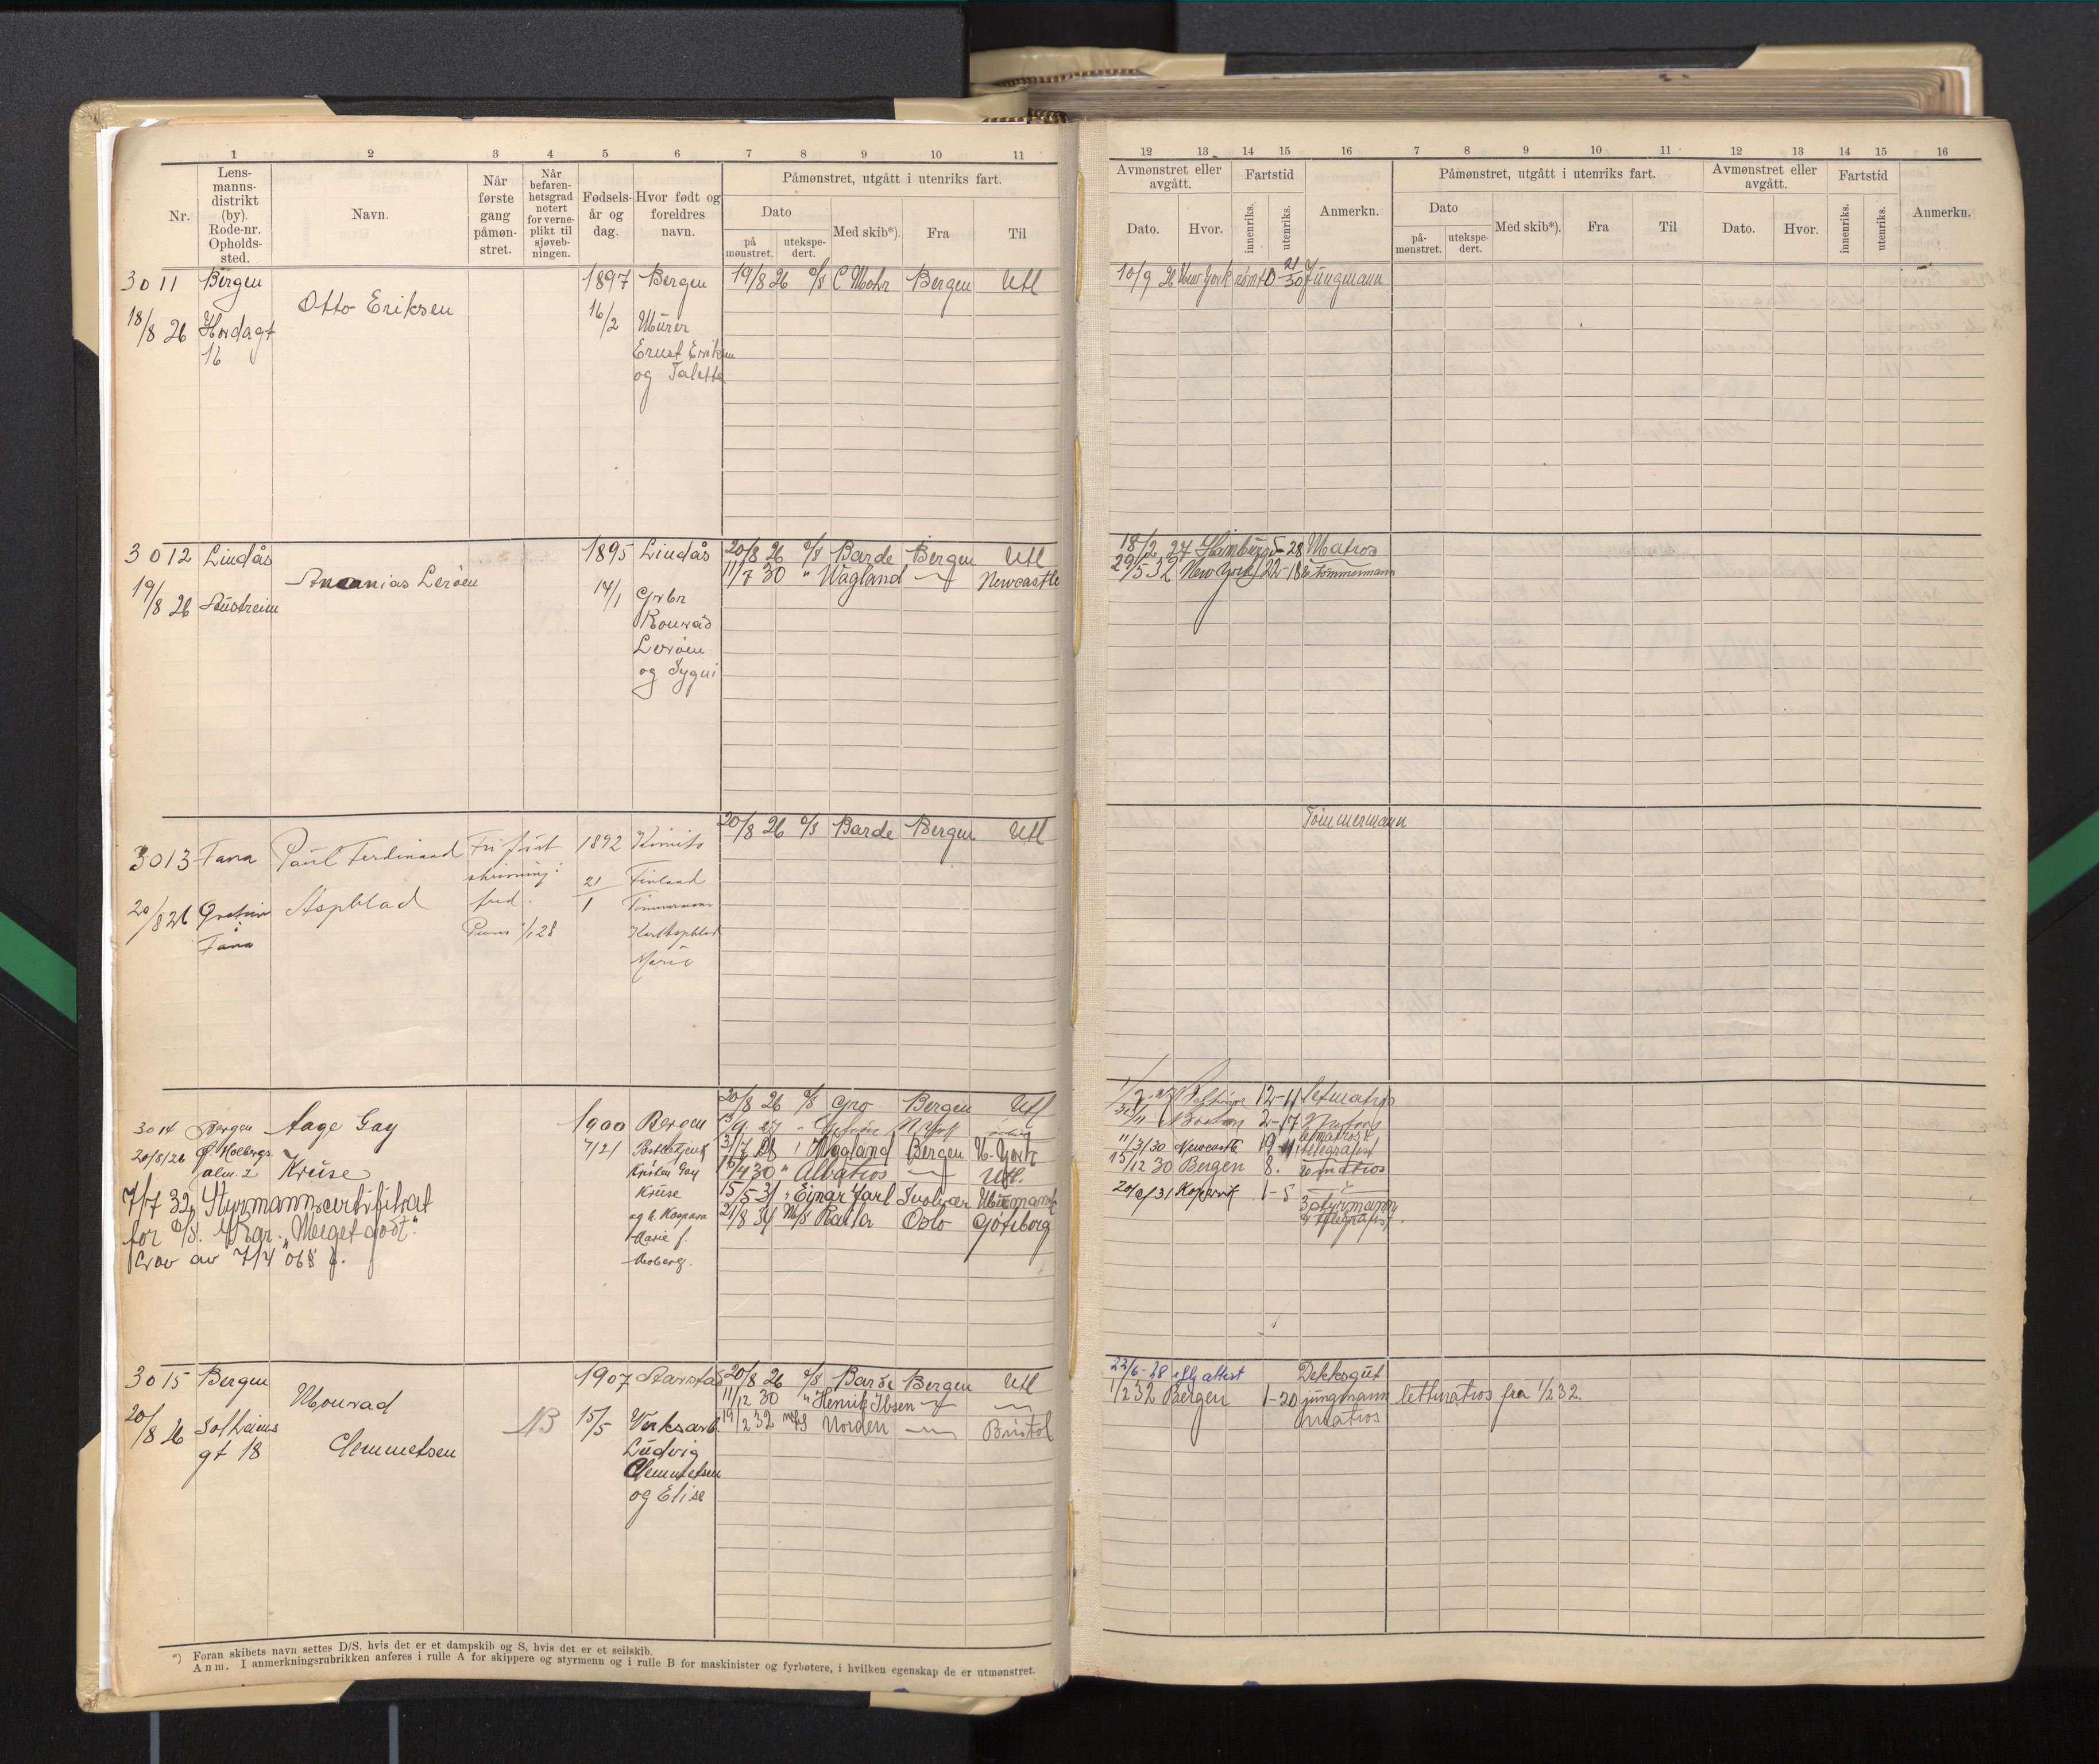 1 2 3 4 5 6 7 8 9 10 11
Nr.
Lens-
manns-
distrikt
(by).
Rode-nr.
Opholds-
sted.
Navn.
Når
første
gang
påmøn-
stret.
Når
befaren-
hetsgrad
notert
for verne-
plikt til
sjøveb-
ningen.
Fødsels-
år og
dag.
Hvor født og
foreldres
navn.
Påmønstret, utgått i utenriks fart.
Dato
på
mønstret.
utekspe-
dert.
Med skib*).
Fra
Til
3011 Bergen 1897 Bergen 19/8 26 d/s C Mohr Bergen Utl
Otto Eriksen
18/8 26 Hordagt 16/2 Murer
16 Ernst Eriksen
og Taletta
3012 Lindås 1895 Lindås 20/8 26 d/s Barde Bergen Utl
Ananias Lerøen 11/7 30 " Wagland Newcastle
19/8 26 Austreim 14/1 Grbr
Konrad
Lerøen
og
20/8 26 d/s Barde Bergen Utl
3013 Fana Paul Ferdinand Fri 1892 Kimito
21/1 Finland
20/8 26 Aspblad fred. Tømmermann
Fana 1/1 28 Karl Aspblad
Marie
20/8 26 d/s Gro Bergen Utl
3014 Bergen Aage Gay 1900 Bergen
20/8/26 L. Holbergs 7/21 31/7 28 Wagland Bergen N. York
alm. 2 Kruse Kristen Gay 16/4 30 " Albatros Utl.
Kruse 15/5 31 " Einar Jarl Svolvær Murmansk
7/7 32, Styrmannscertifikat og h. Kaspara 21/8 34 M/S Ratla Oslo Gøteborg
for d/s. Kar. "Meget godt". Marie f.
Lov av 7/4 06 § Moberg.
3015 Bergen 1907 20/8 26 d/s Barde Bergen Utl
Monrad 11/12 30 " Henrik Ibsen
20/8 26 Solheims NB 15/5 Verksarb. 19/2 32 M/S Norden Bristol
gt 18 Clemmetsen Ludvig
Clemmetsen
og Elise
*) Foran skibets navn settes D/S, hvis det er et dampskib og S, hvis det er et seilskib.
Anm. I anmerkningsrubrikken anføres i rulle A for skippere og styrmenn og i rulle B for maskinister og fyrbøtere, i hvilken egenskap de er utmønstret.
12 13 14 15 16 7 8 9 10 11 12 13 14 15 16
Avmønstret eller
avgått.
Dato.
Hvor.
Fartstid
innenriks.
utenriks.
Anmerkn.
Påmønstret, utgått i utenriks fart.
Dato
på-
mønstret.
utekspe-
dert.
Med skib*).
Fra
Til
Avmønstret eller
avgått.
Dato.
Hvor.
Fartstid
innenriks.
utenriks.
Anmerkn.
10/9 26 New York rømt 0 21/30 Jungmann
18/2 27 Hamburg 5-28 Matros
29/5 32 New York 22-18 Tømmermann
Tømmermann
12-11 letmatros
2-17
11/3/30 Newcastle 19-11 telegrafist
15/12 30 Bergen 8. matros
Kopervik 1-5
3 styrmann
telegrafist.
22/6-28 attest Dekksgut
1/2 32 Bergen 1-20 jungmann lettmatros fra 1/2 32.
matros